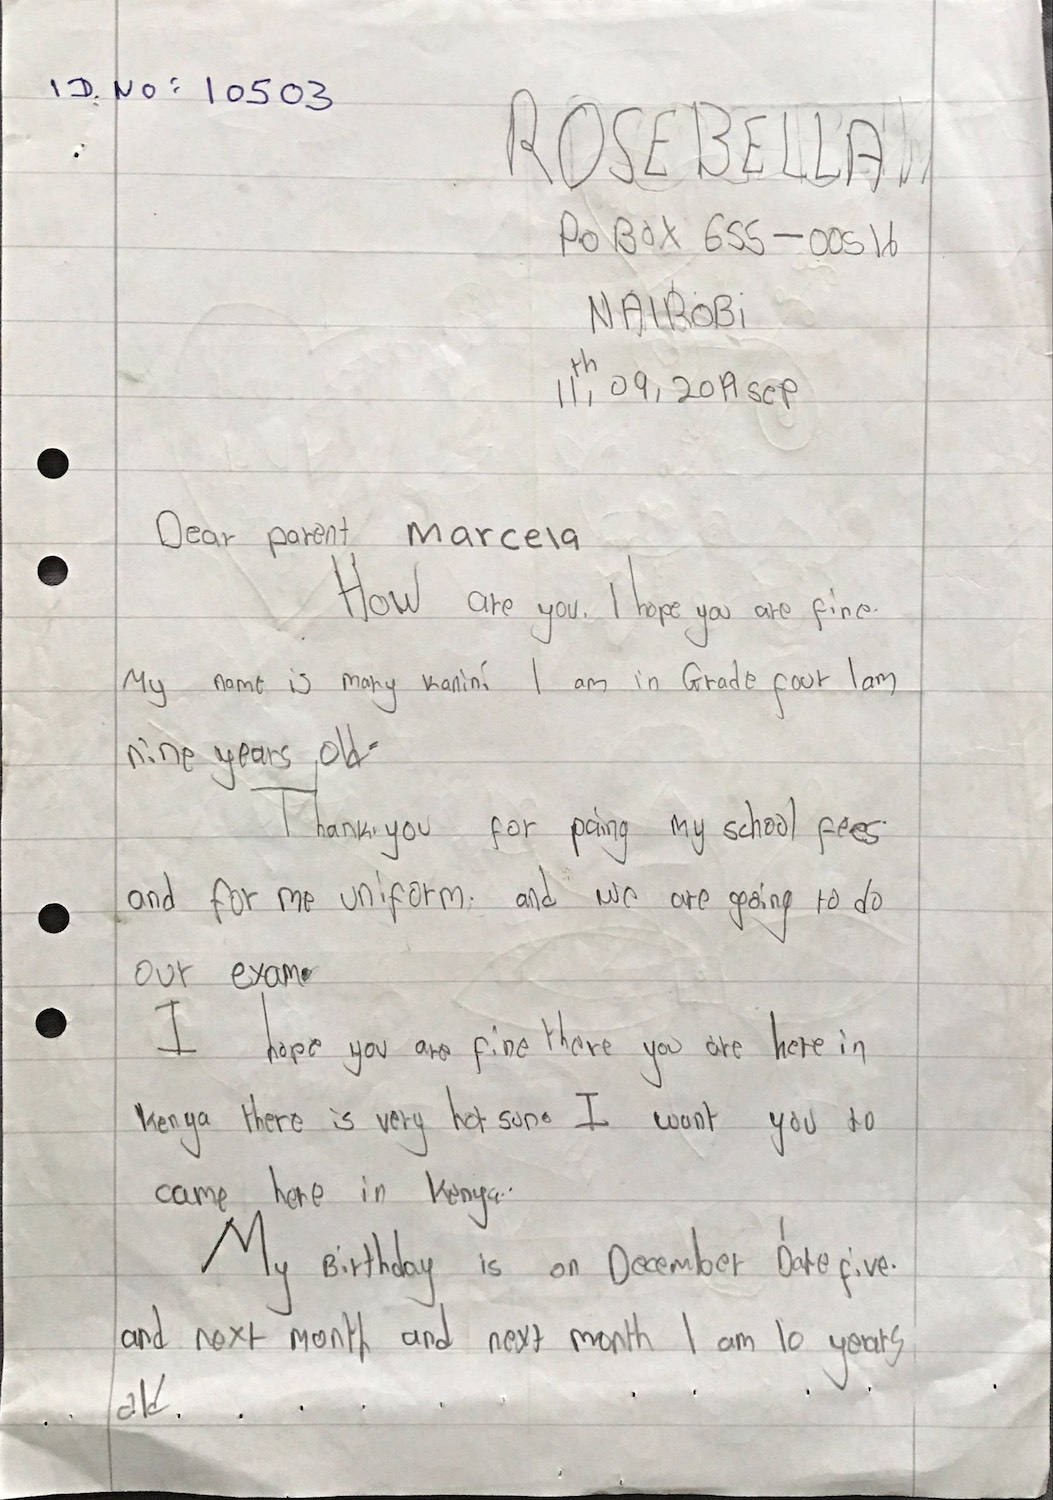 ID. NO: 10503
ROSEBELLA
PO BOX 655-00516
NAIROBi
11th, 09, 2019 sep
Dear parent Marcela
How are you. I hope you are fine.
My name is mary kanini I am in Grade four I am
nine years old
Thank you for paing my school fees
and for me uniform. and we are going to do
our exam.
I hope you are fine there you are here in
kenya there is very hot sun. I want you to
came here in kenya.
My Birthday is on December Date five.
and next month and next month I am 10 years
old.